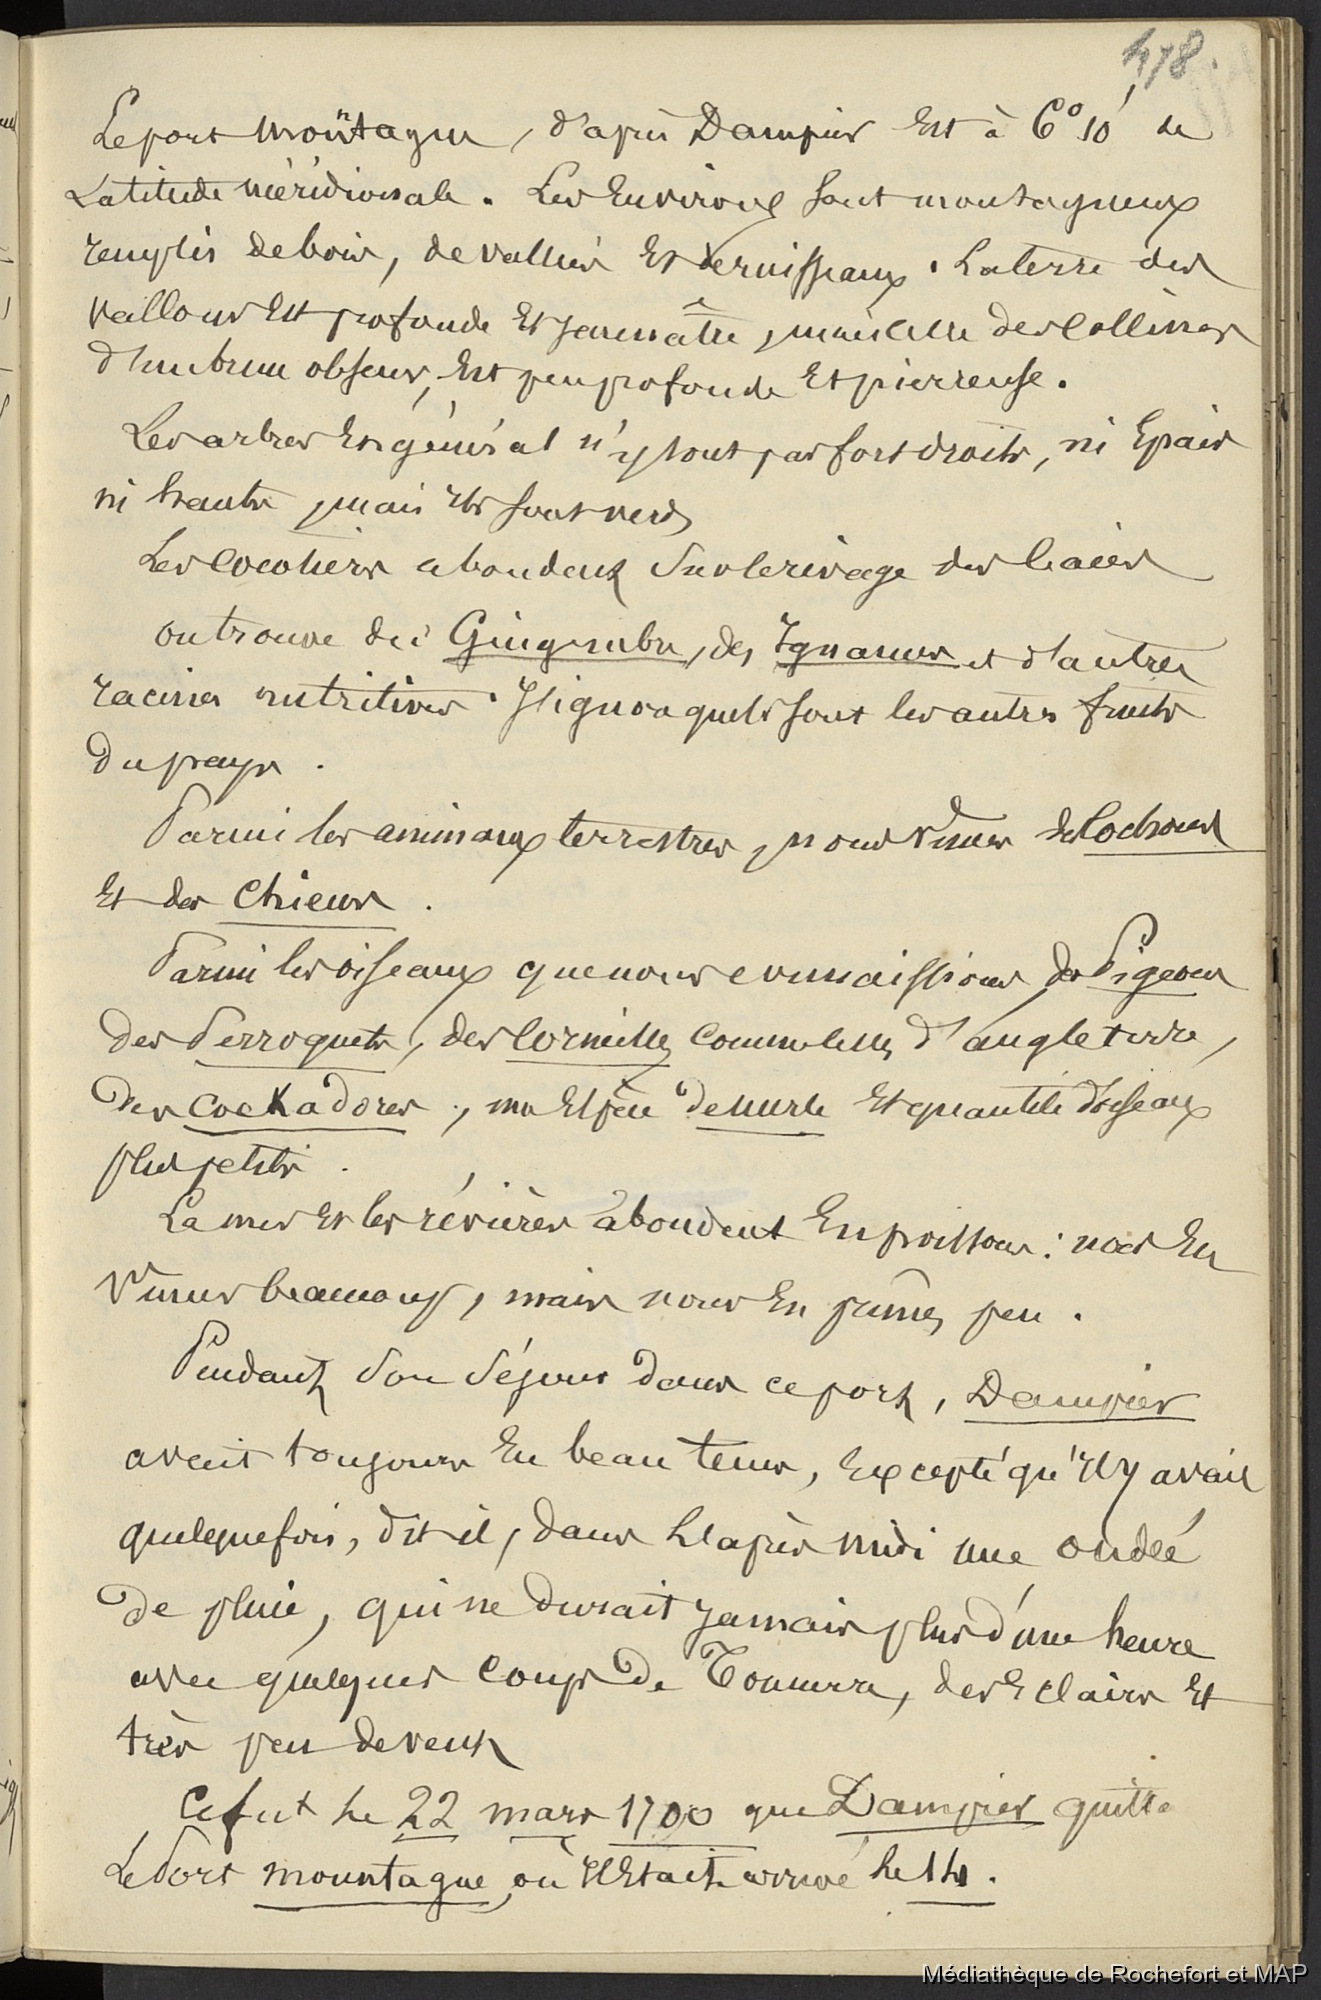 478.
Le port Mountague, d'après Dampier Est à 6° 10' de
Latitude méridionale. Les Environs sont montagneux
remplis de bois, de vallées Et de ruisseaux. La terre des
vallons Est profonde Et jaunâtre, mais celle des Collines
d'un brun obscur, Est peu profonde Et pierreuse.
Les arbres En général n'y sont pas fort droits, ni Epais
ni hauts, mais Ils sont verds
Les Cocotiers abondent sur le rivage des baies
on trouve du Gingembre, des Ignames et d'autres
racines nutritives. Il ignora quels sont les autres fruits
du pays.
Parmi les animaux terrestres, nous vîmes des Cochons
Et des Chiens.
Parmi les oiseaux que nous connaissions des Pigeons
des Perroquets, des Corneilles comme celles d'angleterre,
des Cockadores, une Espèce de merle Et quantité d'oiseaux
plus petits.
La mer Et les rivières abondent En poissons : nous En
vîmes beaucoup, mais nous En prîmes peu.
Pendant son séjour dans ce port, Dampier
avait toujours Eu beau tems, Excepté qu'Il y avait
quelquefois, dit il, dans l'après midi une ondée
de pluie, qui ne durait jamais plus d'une heure
avec quelques coups de Tonnerre, des Eclairs Et
très peu de vent
Ce fut le 22 mars 1700 que Dampier quitta
Le Port mountague, où Il Etait arrivé le 14.
Médiathèque de Rochefort et MAP